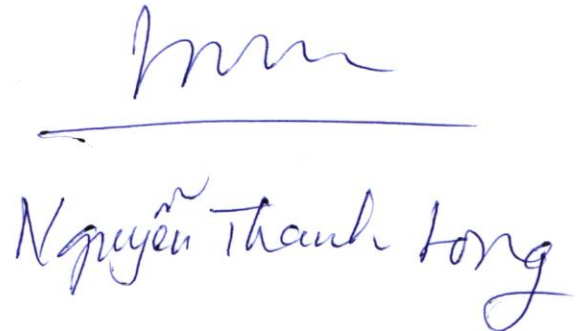 Nguyễn Thanh Long